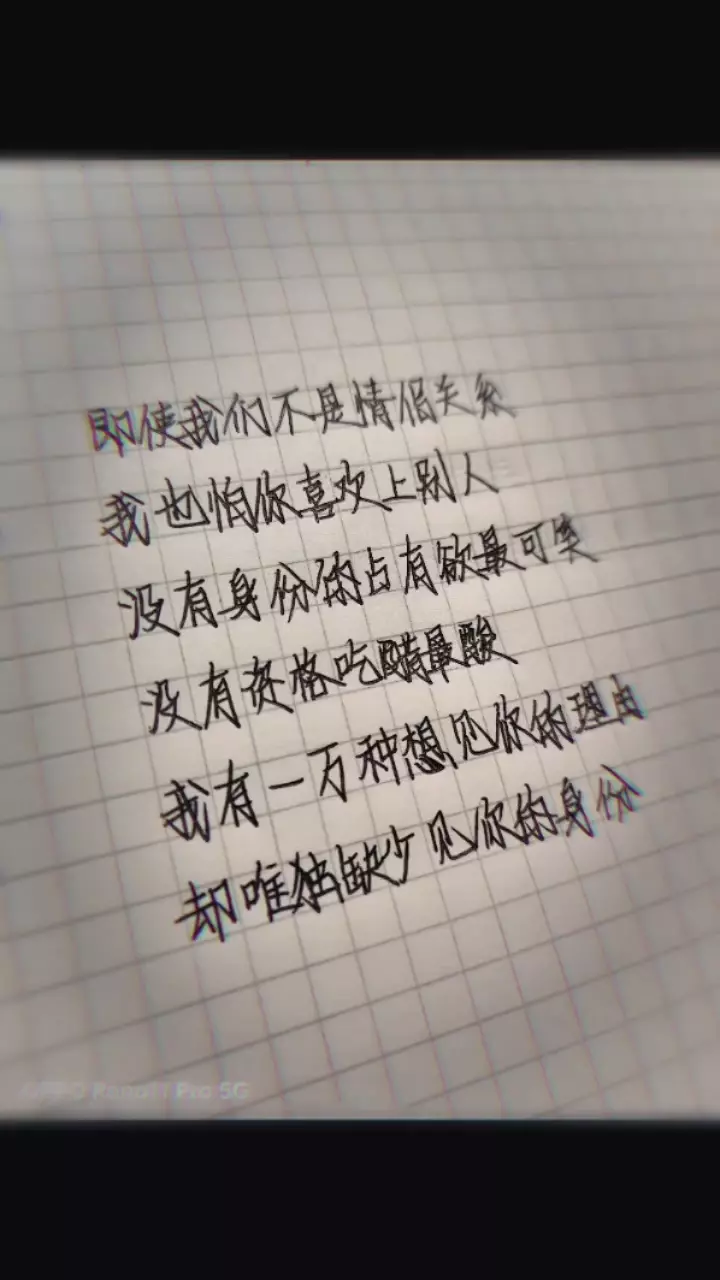 即使我们不是情侣关系
我也怕你喜欢上别人
没有身份的占有欲最可笑
没有资格吃醋最酸
我有一万种想见你的理由
却唯独缺少见你的身份
OPPO Reno11 Pro 5G